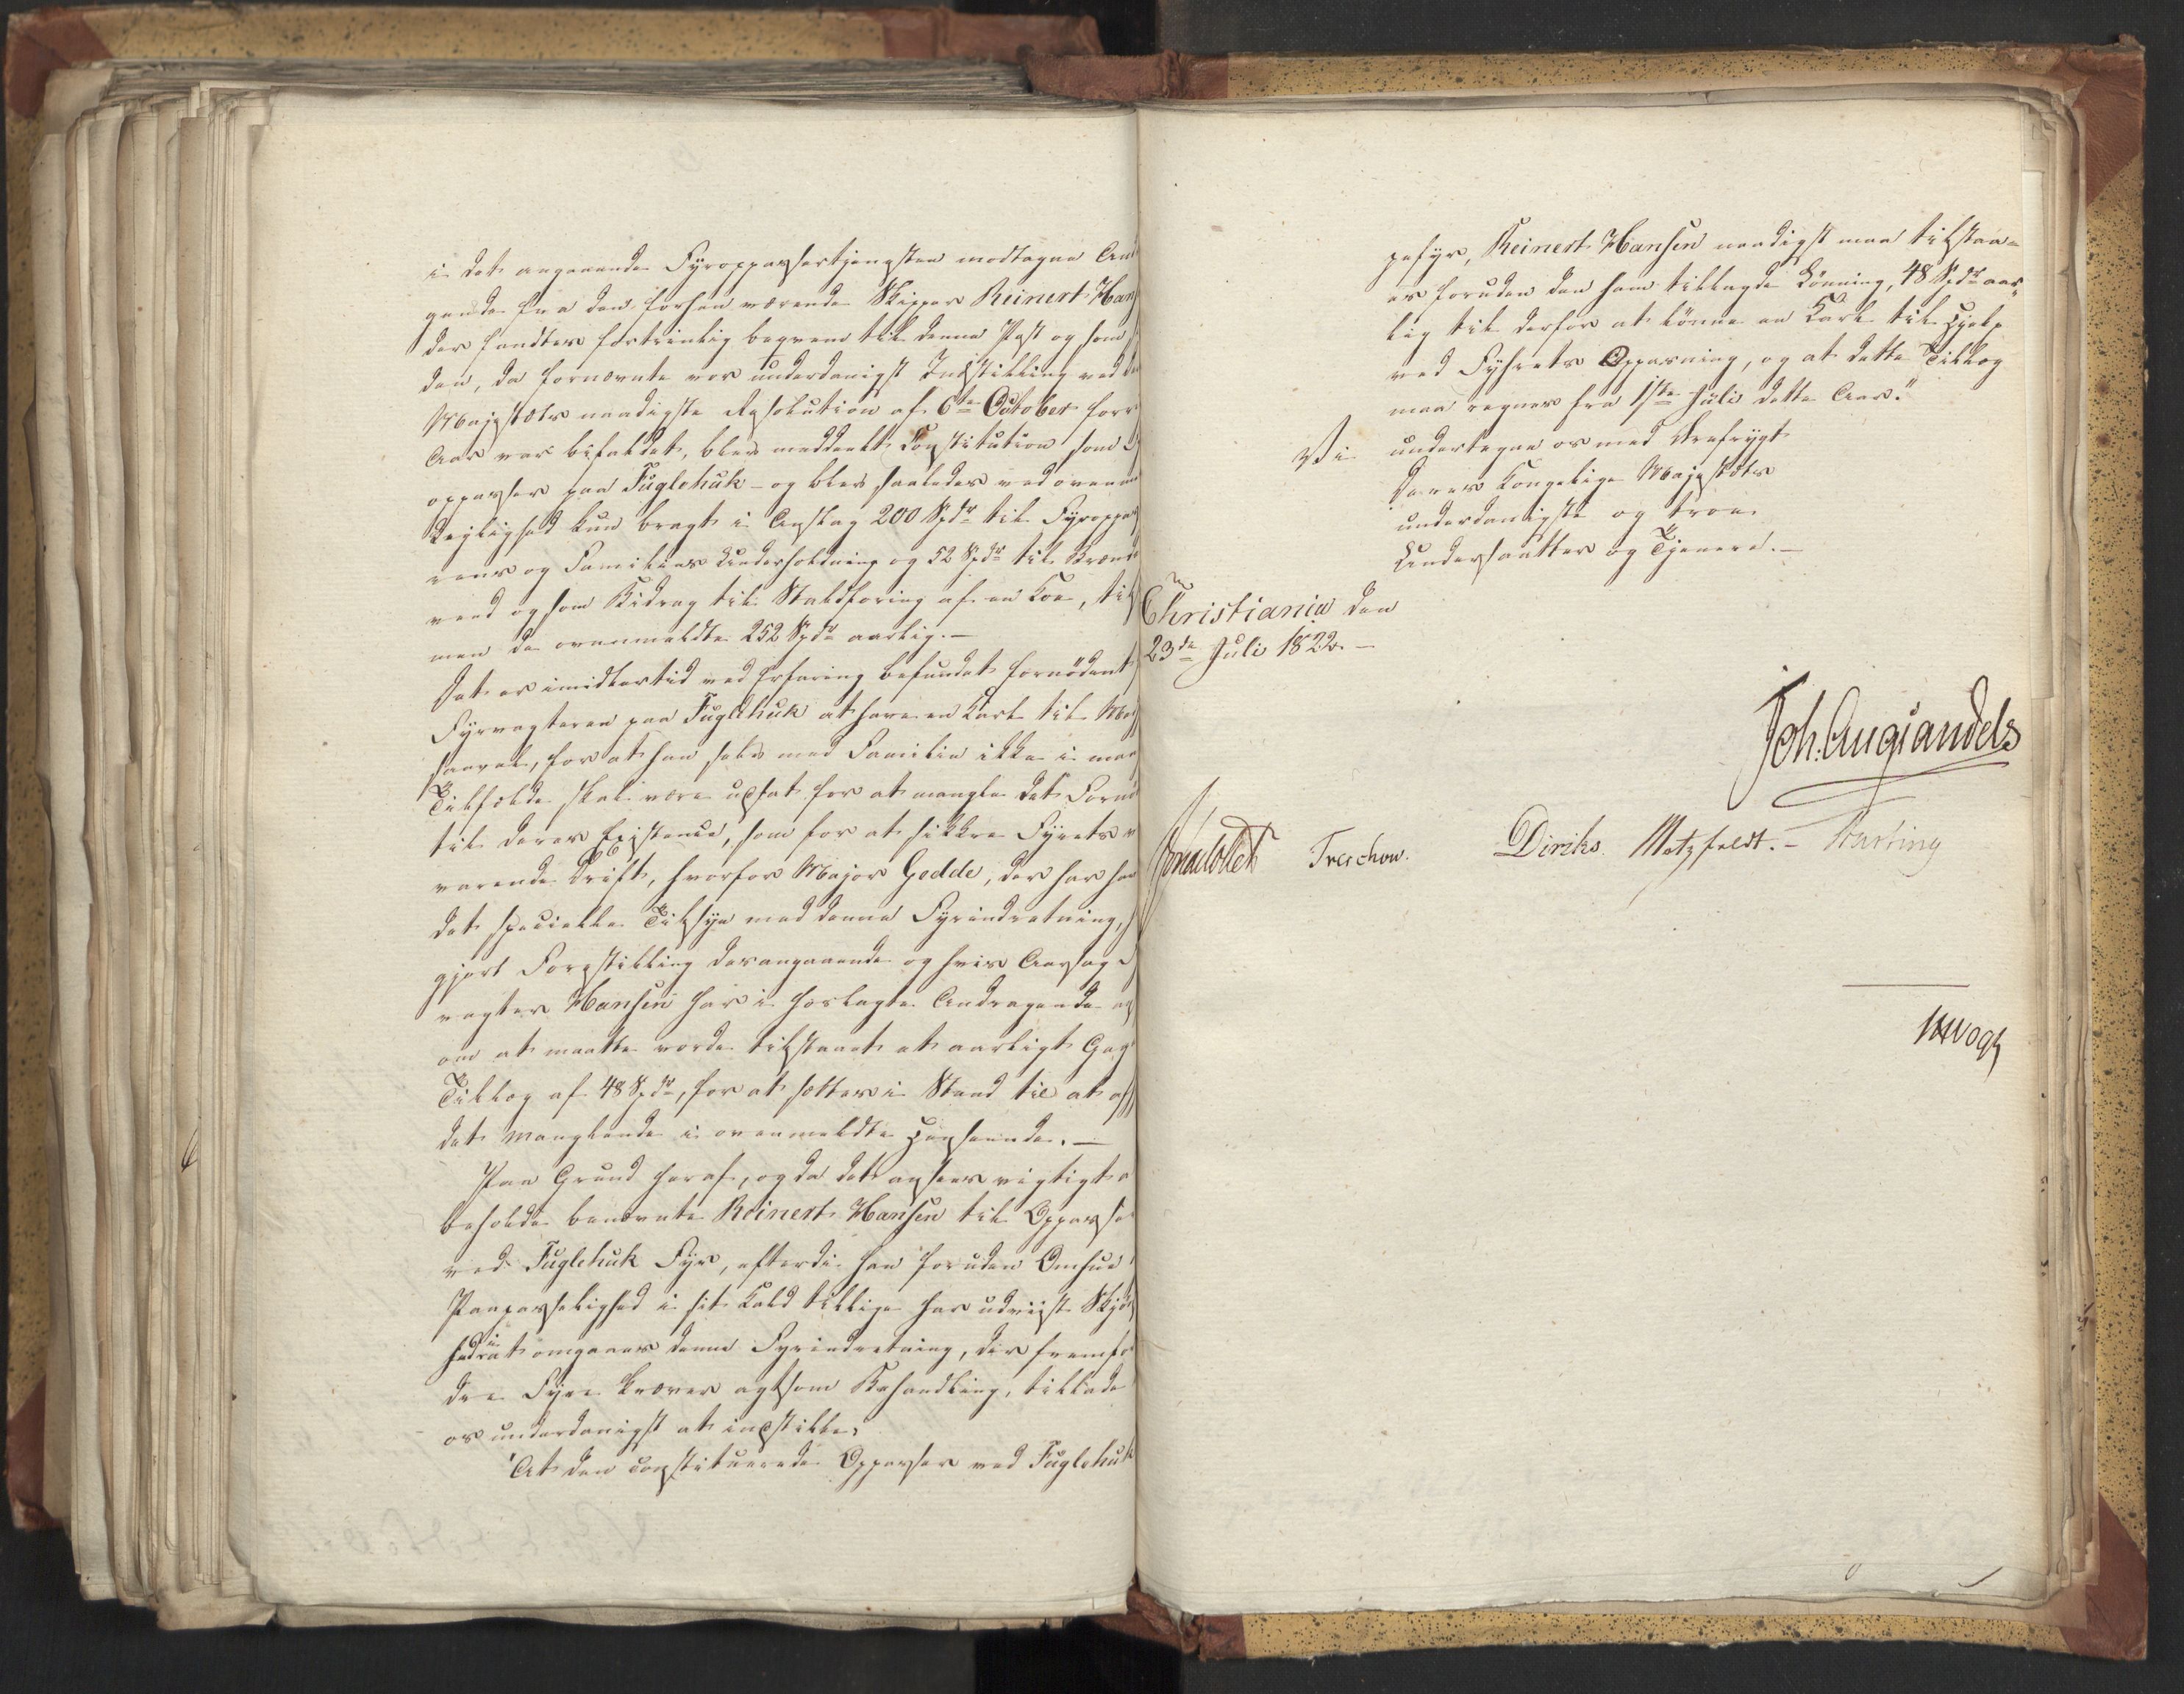 i det angaaende Fyroppassertjenesten modtagne An
gende fra den forhen værende Skipper Reinert Han
der fandtes fortrinlig beqvem til denne Post og som
den, da fornævnte vor underdanigst Indstilling ved De
Majestæts naadigste Resolution af 6te October forr
Aar var bifaldet, blev meddeelt Constitution som
oppasser paa Fuglehuk – og blev saaledes ved oven
Leylighed kun bragt i Anslag 200 Spdr til Fyroppas
rens og Familiens Underholdning og 52 Spdr til Brænde
veed og som Bidrag til Staldforing af en Koe, til
men de ovenmeldte 252 Spdr aarlig. –
Det er imidlertid ved Erfaring befundet fornødent
Fyrvogteren paa Fuglehuk at have en Karl til Med
saavel, for at han selv med Familie ikke i man
Tilfælde skal være udsat for at mangle det Fornø
til deres Existence, som for at sikkre Fyrets v
varende Drift, hvorfor Major Gedde, der har hav
det specielle Tilsyn med denne Fyrindretning,
gjort Forestilling desangaaende og hvis Aarsag
vogter Hansen har i hoslagte Andragende an
om at maatte vorde tilstaaet et aarligt Gage
Tillæg af 48 Spdr, for at sættes i Stand til at af
det manglende i ovenmeldte Henseende. –
Paa Grund heraf, og da det ansees vigtigt a
beholde benævnte Reinert Hansen til Oppasse
ved Fuglehuk Fyr, efterdi han foruden Omhue
Paapasselighed i sit Kald tillige har udviist Skjøn
hed i at omgaaes denne Fyrindretning, der fremfo
dre Fyre kræver agtsom Behandling, tillade
os underdanigst at indstille:
"At den constituerede Oppasser ved Fuglehuk
pefyr, Reinert Hansen naadigst maa tilstaa-
es foruden den ham tillagde Lønning, 48 Spdr aar-
lig til derfor at lønne en Karl til Hjelp
ved Fyhrets Oppasning, og at dette Tillæg
maa regnes fra 1ste Juli dette Aar."
Vi undertegne os med Ærefrygt
Deres Kongelige Majestæts
underdanigste og troe
Undersaatter og Tjenere. –
Christiania den
23de Juli 1822. –
Joh. Aug. Sandels
Sommerhielm Treschow. Diriks. Motzfeldt. – Krafting
Vogt